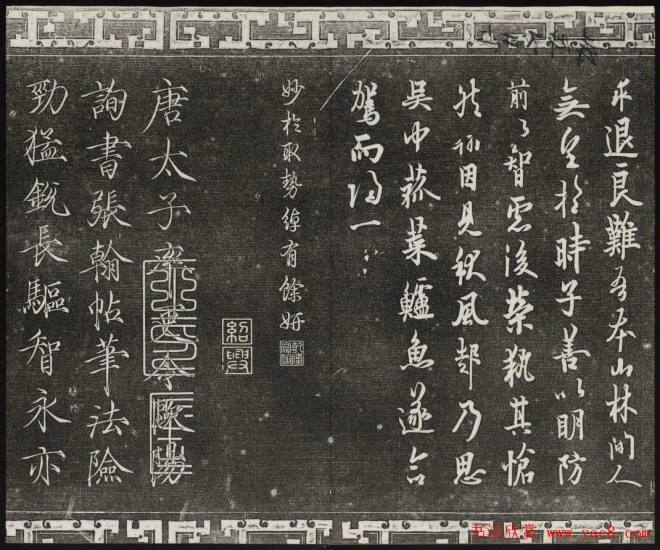 求退良難吾本山林間人
無望於時子善以明防
前以智慮後榮執其愴
然翰因見秋風起乃思
吳中菰菜鱸魚遂命
駕而歸
妙於取勢綽有餘妍
紹興
唐太子率更令歐陽
詢書張翰帖筆法險
勁猛銳長驅智永亦
书法欣赏 www.yac8.com